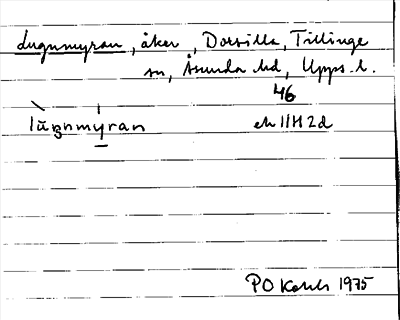 Lugnmyran, åker, Dorsilla, Tillinge
sn, Åsunda hd, Upps. l.
46
lūgnmyran ek 11H2d
PO 1975